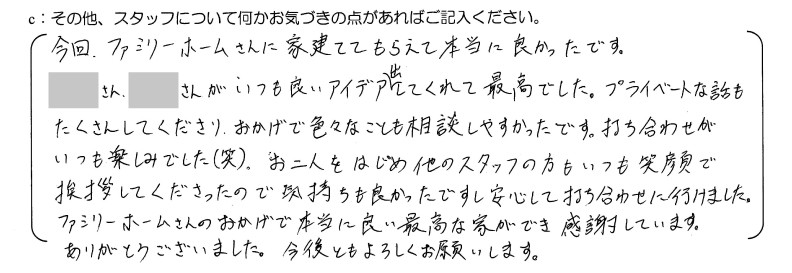 c：その他、スタッフについて何かお気づきの点があればご記入ください。
今回、ファミリーホームさんに家建ててもらえて本当に良かったです。
さん、さんがいつも良いアイデア出してくれて最高でした。プライベートな話も
たくさんしてくださり、おかげで色々なことも相談しやすかったです。打ち合わせが
いつも楽しみでした(笑)。お二人をはじめ他のスタッフの方もいつも笑顔で
挨拶してくださったので気持ちも良かったですし安心して打ち合わせに行けました。
ファミリーホームさんのおかげで本当に良い最高な家ができ感謝しています。
ありがとうございました。今後ともよろしくお願いします。